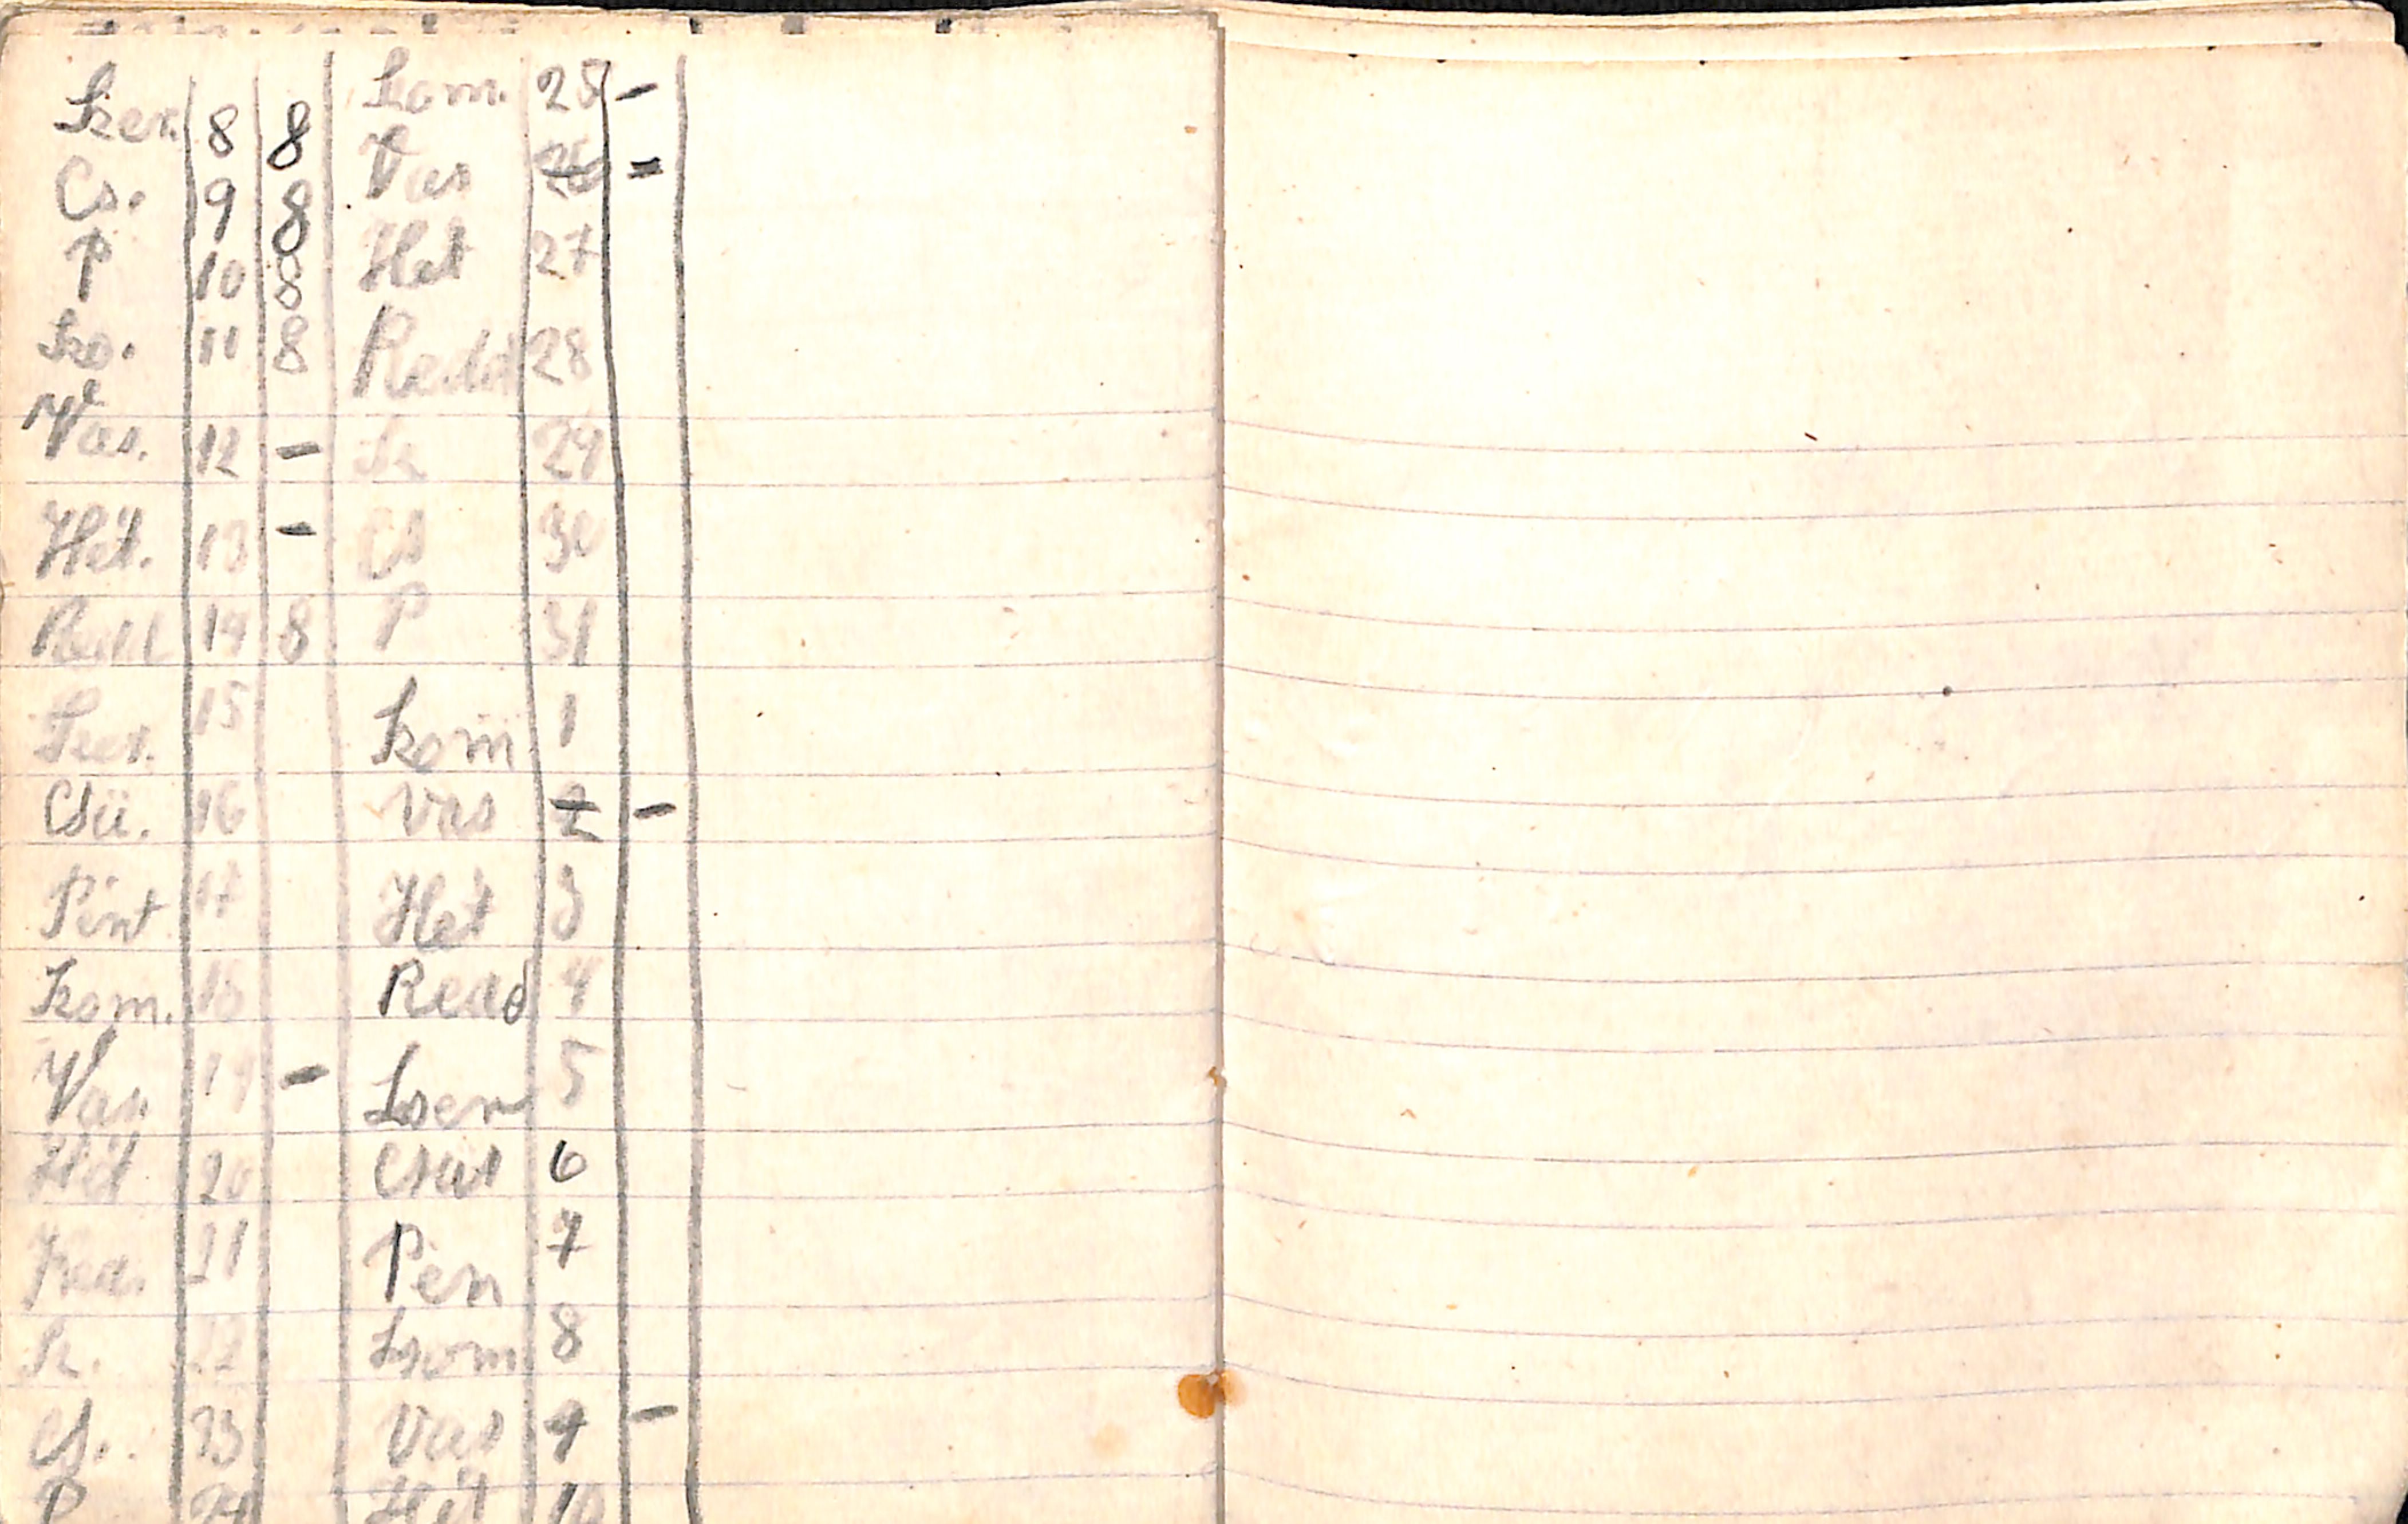 Szer. 8 8 Szom. 25 -
Cs. 9 8 Vas 26 =
P 10 8 Hét 27
Szo. 11 8 Kedd 28
Vas. 12 - Sz 29
Hét. 13 - Cs 30
Kedd 14 8 P 31
Szer. 15 Szom 1
Csü. 16 Vas 2 -
Pént 17 Hét 3
Szom. 18 Kedd 4
Vas. 19 - Szer 5
Hét 20 Csüt 6
Ked. 21 Pén 7
Sz. 22 Szom 8
Cs. 23 Vas 9 -
P 24 Hét 10